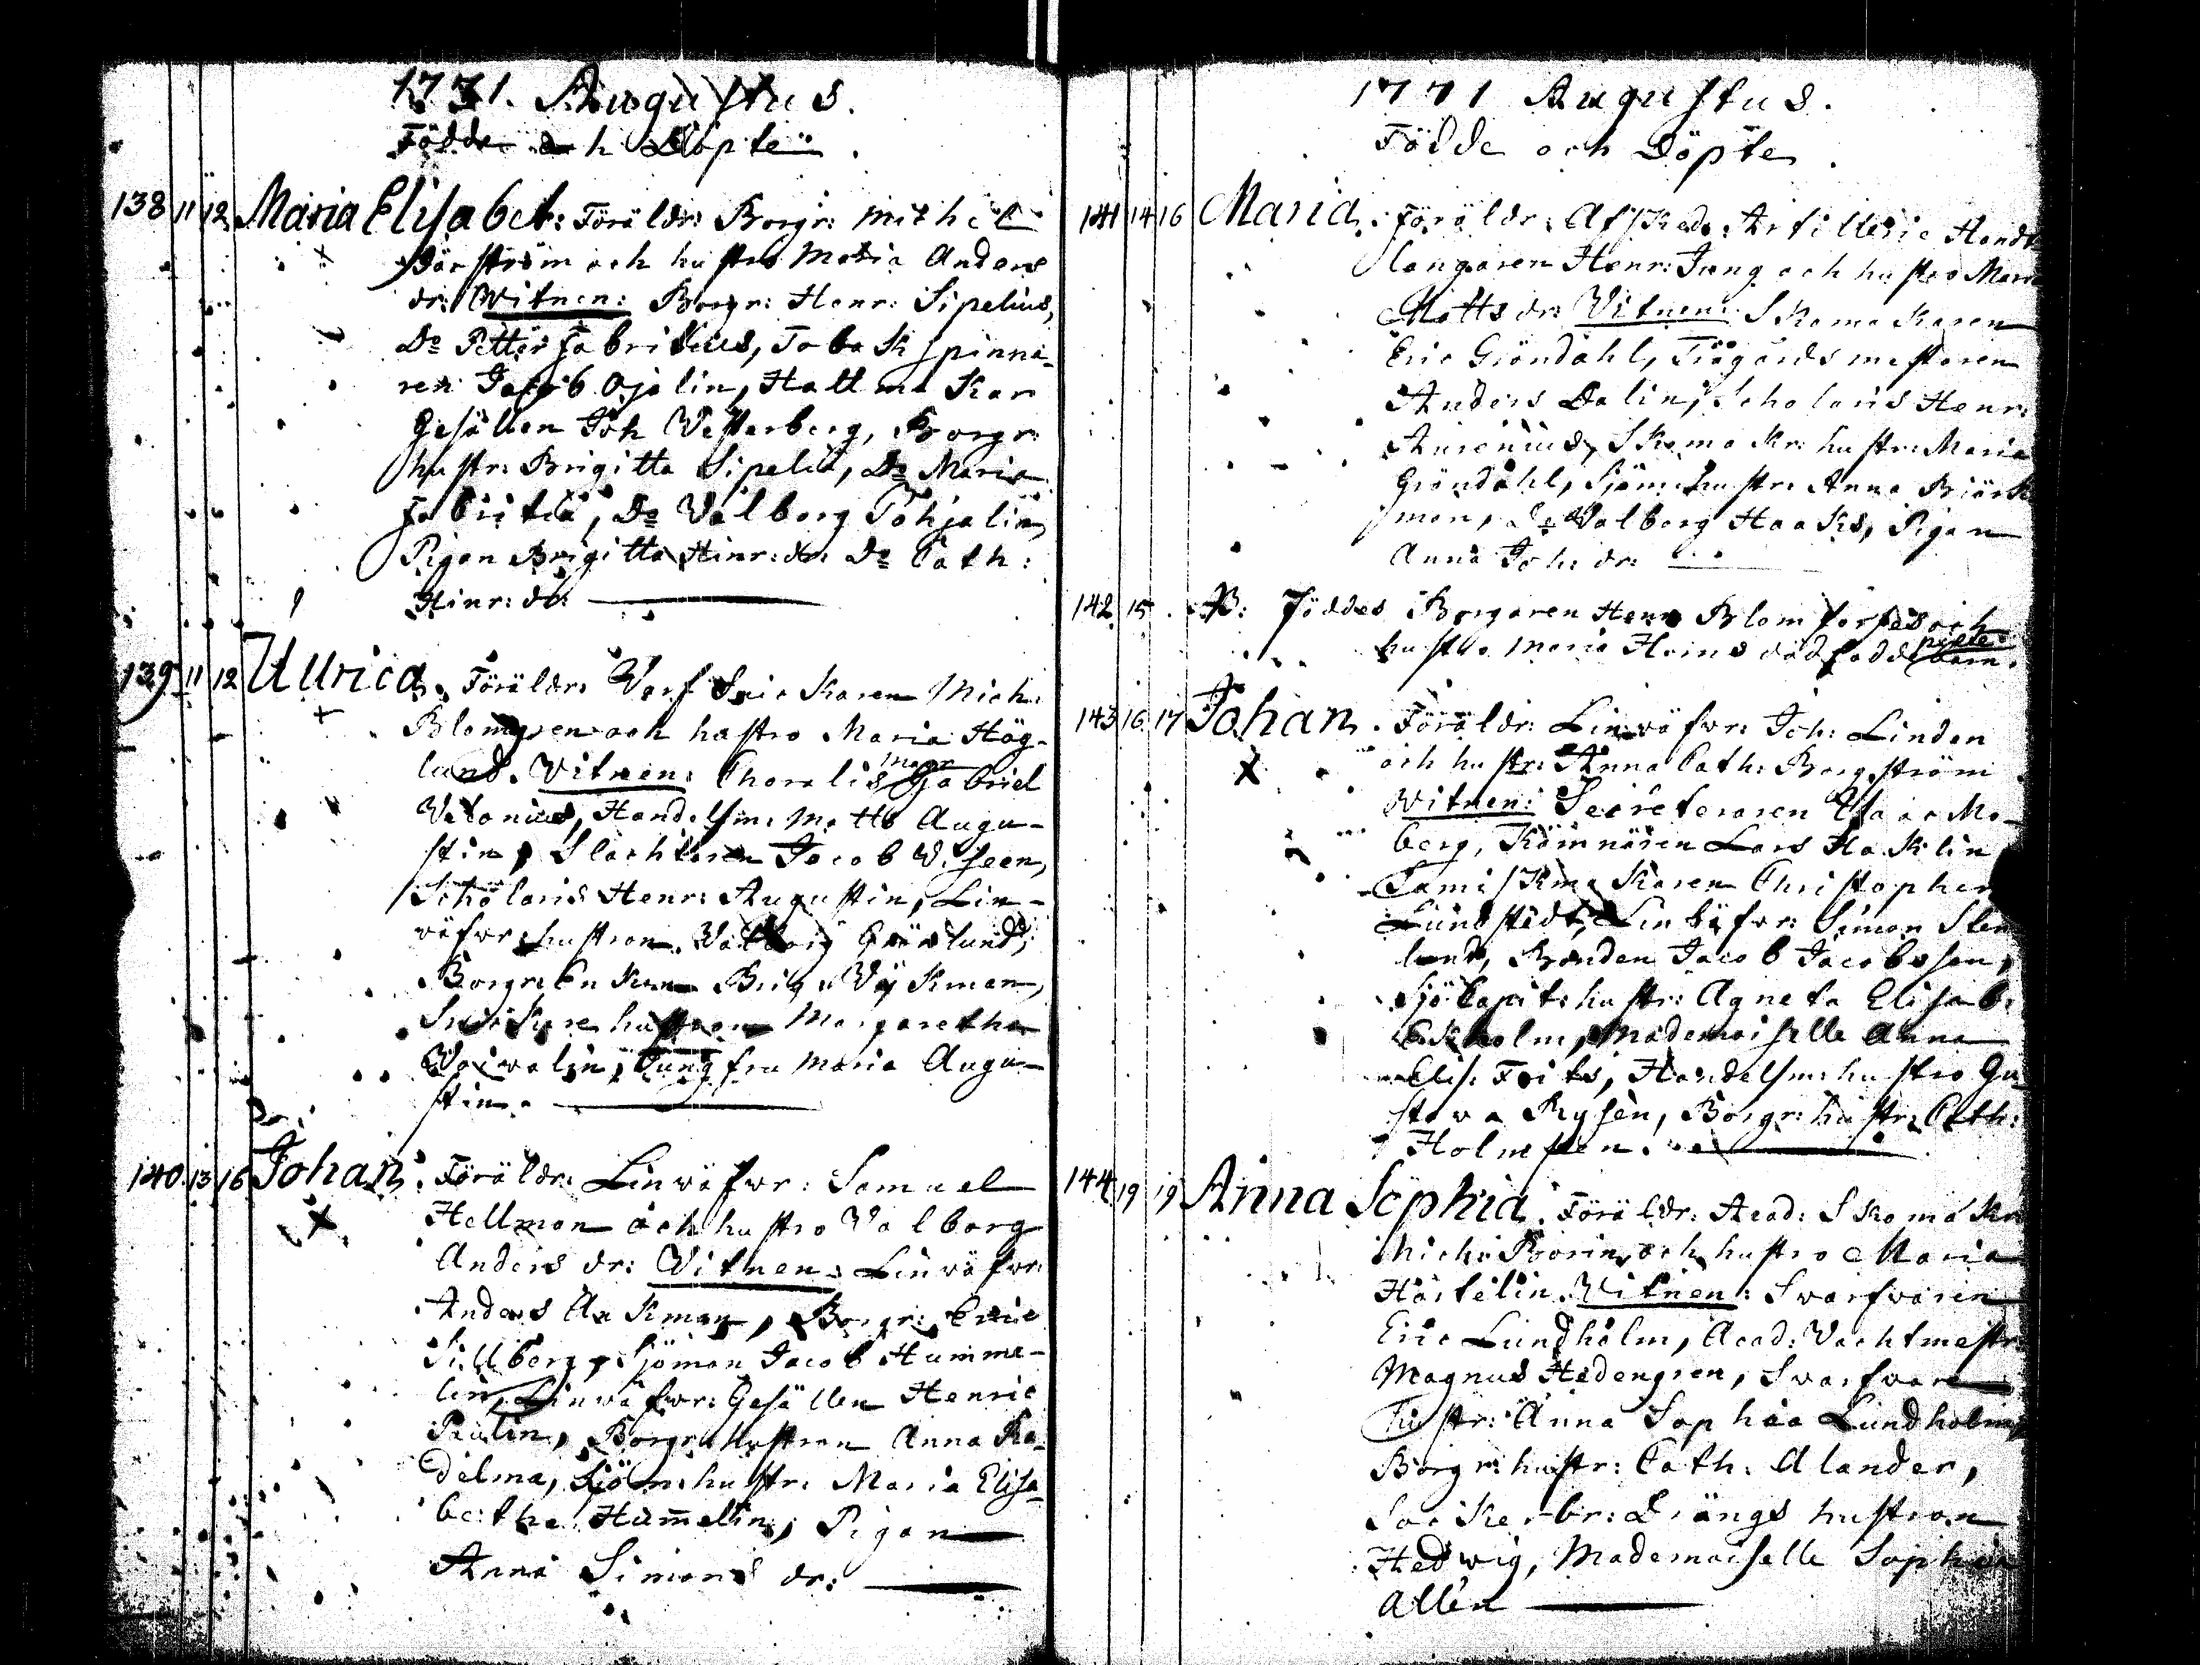 1771. Augustus.
Födde och Döpte
138 11 12 Maria Elisabet: Föräldr: Borgr: Michel
ström och hustro Maria Anders
dr: Witnen: Borgr: Henr: Sipelius,
Do Petter Fabritius, Tobak spinna-
ren Jacob Ojalin, Hattma Kar
Gesällen Joh Westerberg, Borgr:
hustr: Brigitta Sipelia, Do Maria
Fabritia, Do Walborg Tohjalin
Pigan Brigitta Hinr: dr: Do Cath:
Hinr: dr:
139 11 12 Ulrica. Föräldr: Varf Snic Karen Mich:
Blomgren och hustro Maria Hög-
lund. Witnen: Choralis Magr Gabriel
Vetonius, Handelsm: Matts Augu-
stin, Slachtaren Jacob Wiseen,
Scholaris Henr: Augustin, Lin-
wäfwr: hustron Walborg Grönlund,
Borgr: En Kan Brig: WyKman,
SnicKare hustron Margaretha
Waiwalin, Jungfru Maria Augu-
stin.
140 13 16 Johan. Föräldr: Linwäfwr: Samuel
Hellman och hustro Walborg
Anders dr: Witnen: Linwäfwr:
Anders AaKman, Borgr: Eric
Killberg, Sjöman Jacob Humme-
lin, Linwäfwr: Gesällen Henric
Paulin, Borgr: hustron Anna Ka-
delma, Sjöm: hustr: Maria Elisa-
betha Hummelin, Pigan
Anna Simons dr:
1771 Augustus.
Födde och Döpte
141 14 16 Maria. Föräldr: AfsKed: Artillerie Handt
langaren Henr: Jung och hustro Maria
Matts dr: Witnen: SkomaKaren
Eric Gröndahl, Trägårdsmestaren
Anders Dalin, Scholaris Henr:
Aurenius, SkomaKr: hustr: Maria
Gröndahl, Sjöm: hustr: Anna BiörK
man, Do Walborg HaaKs, Pigan
Anna Joh: dr:
142 15 NB: Föddes Borgaren Henr Blomforses och
hustro Maria Heins dödfödde pilte barn.
143 16 17 Johan. Föräldr: Linwäfwr: Joh: Linden
och hustr: Anna Cath: Borgström
Witnen: Secreteraren Isaac Mo-
berg, Kämnären Lars HaKlin
KamisKmaKaren Christopher
Lundstedt, Linwäfwr: Simon Sten
lund, Bonden Jacob Jacobsson,
SjöCapit: hustr: Agneta Elisab:
Ekholm, Mademoiselle Anna
Elis: Frits, Handelsm: hustro Gu-
stava Rysén, Borgr: hustr: Cath:
Holmsten.
144 19 19 Anna Sophia. Föräldr: Acad: SkomaKr
Mich: Boorin och hustro Maria
Härtelin. Witnen: Swarfwaren
Eric Lundholm, Acad: Vachtmestr:
Magnus Hedengren, Swarfware
hustr: Anna Sophia Lundholm,
Borgr: hustr: Cath: Alander,
SocKerbr: Drängs hustron
Hedwig, Mademoiselle Sophia
Allén